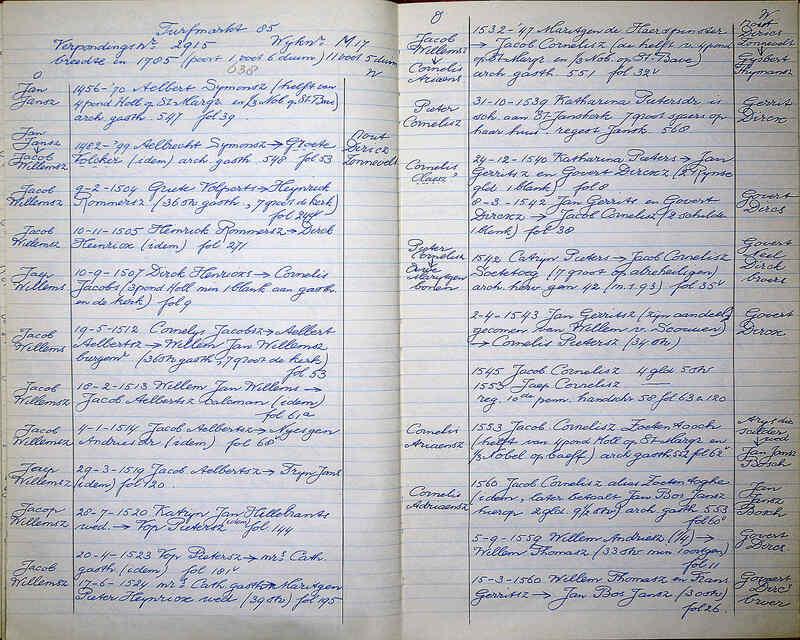 Turfmarkt 85
Verpondings Nr. 2915 Wijk Nr. M 17
breedte in 1705 (poort 1 voet 6 duim) 11 voet 5 duim
038
O
W
Jan
Jansz
1456-'70 Aelbert Symonsz (helft v
4 pond Holl op St Margr en 1/3 Nob op St Bav)
arch gasth. 547 fol 39
Jan
Jansz
↓
Jacob
Willemsz
1482-'99 Aelbrecht Symonsz → Griete
Volcker (idem) arch gasth. 548 fol 53
Nout
Diricz
Zonnevelt
Jacob
Willemsz
9-2-1504 Griete Volperts → Heynrick
Rommersz (36 st gasth, 7 groot de kerk)
fol 244v
Jacob
Willemsz
10-11-1505 Heinrick Rommersz → Dirck
Heinricx (idem) fol 271
Jaep
Willems
10-9-1507 Dirck Henricxs → Cornelis
Jacobs (3 pond Holl min 1 blank aan gasth
en de kerk) fol 9
Jacob
Willems
19-5-1512 Cornelys Jacobsz → Aelbert
Aelbertsz → Willem Jan Willemsz
burgemr (36 st gasth, 7 groot de kerk)
fol 53
Jacob
Willemsz
18-2-1513 Willem Jan Willems →
Jacob Aelbertsz taleman (idem)
fol 61a
Jacob
Willemsz
4-1-1514 Jacob Aelbertsz → Nyesgen
Andries dr (idem) fol 68
Jaep
Willemsz
29-3-1519 Jacob Aelbertsz → Tryn Jans
(idem) fol 120
Jacop
Willemsz
28-7-1520 Katryn Jan Hillebrants
wed. → Top Pietersz (idem) fol 144
Jacob
Willemsz
20-4-1523 Top Pietersz → mrs Cath.
gasth. (idem) fol 181v
17-6-1524 mrs Cath. gasth → Maritgen
Pieter Heynricx wed (39 st) fol 195
O
W
Jacob
Willemsz
↓
Cornelis
Ariaens
1532-'47 Maritgen de Haerspinster
→ Jacob Cornelisz (de helft v. 4 pond
op St Margr en 1/3 Nob. op St. Bave)
arch gasth. 551 fol 32v
Nout
Dirics
Zonnevelt
↓
Gysbert
Thymansz
Pieter
Cornelisz
31-10-1539 Katharina Pieters dr is
sch. aan St. Jansherk 7 groot spers op
haar huis regest Jansk. 568
Gerrit
Dircx
Cornelis
Claesz
24-12-1540 Katharina Pieters → Jan
Gerritsz en Govert Dircxz (24 Rynse
gld 1 blank) fol 8
8-3-1542 Jan Gerrits en Govert
Dircxz → Jacob Cornelisz (2 schilde
1 blank) fol 38
Govert
Dircs
Pieter
Cornelisz
↓
Marytgen
bonen
1542 Catryn Pieters → Jacob Cornelisz
Soetetoog (7 groot op alreheiligen)
arch. herv. gem 42 (m.193) fol 35v
Govert
Geel
Dirck
broers
2-4-1543 Jan Gerritsz (zijn aandeel
gecomen van Willem v. Scouwen)
→ Cornelis Pietersz (34 st)
Govert
Dircx
1545 Jacob Cornelisz 4 gld 5 st
1553 Jaep Cornelisz
reg. 10de penn. handschr 58 fol 63 en 120
Cornelis
Ariaensz
1553 Jacob Cornelisz Zoeten Aooch
(helft van 4 pond Holl op St Margr en
1/3 Nobel op baeff) arch gasth 552 fol 62
Arys die
zadelder
wed
↓
Jan Jansz
Bosch
Cornelis
Adriaensz
1560 Jacob Cornelisz alias Zoeten Aoghe
(idem, later betaalt Jan Bos Jansz
hierop 2 gld. 9 1/2 st) arch gasth 553
fol 60v
Jan
Jansz
Bosch
5-9-1559 Willem Andriesz (1/4) →
Willem Thomasz (33 st min 1 oortgen)
fol 11
Govert
Dircx
15-3-1560 Willem Thomasz en Frans
Gerritsz → Jan Bos Jansz (30 st)
fol 26
Govert
Dircs
brier